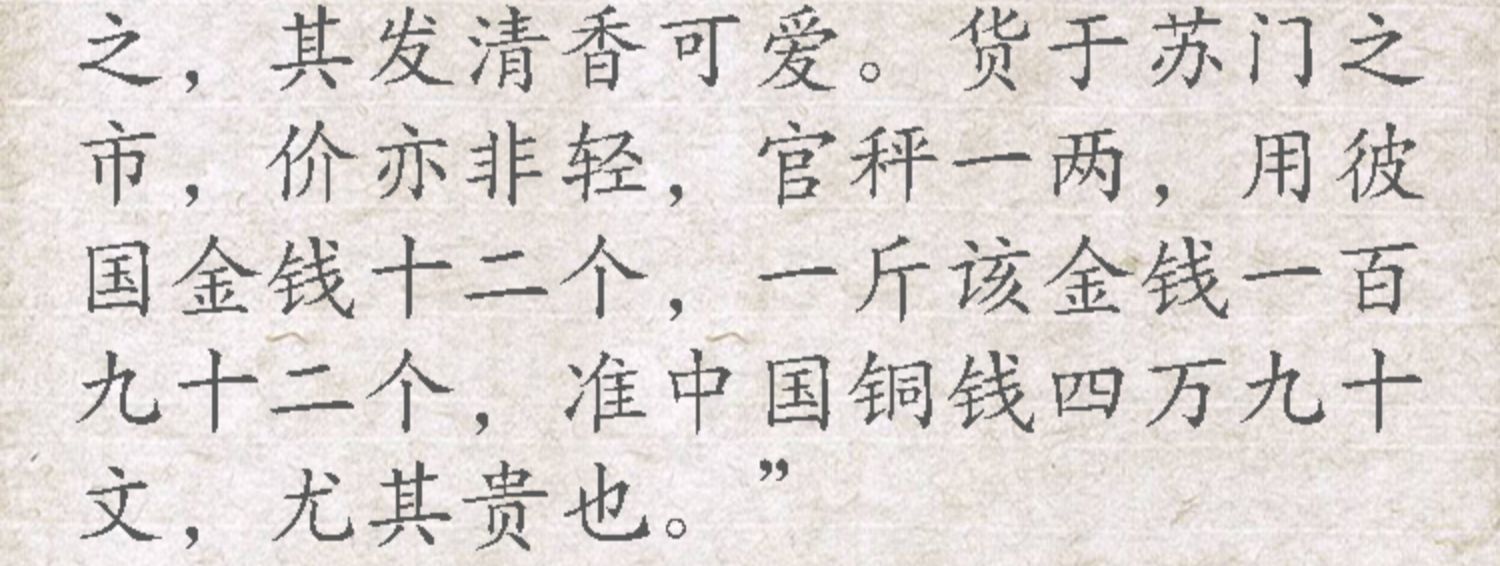 之，其发清香可爱。货于苏门之
市，价亦非轻，官秤一两，用彼
国金钱十二个，一斤该金钱一百
九十二个，准中国铜钱四万九十
文，尤其贵也。”